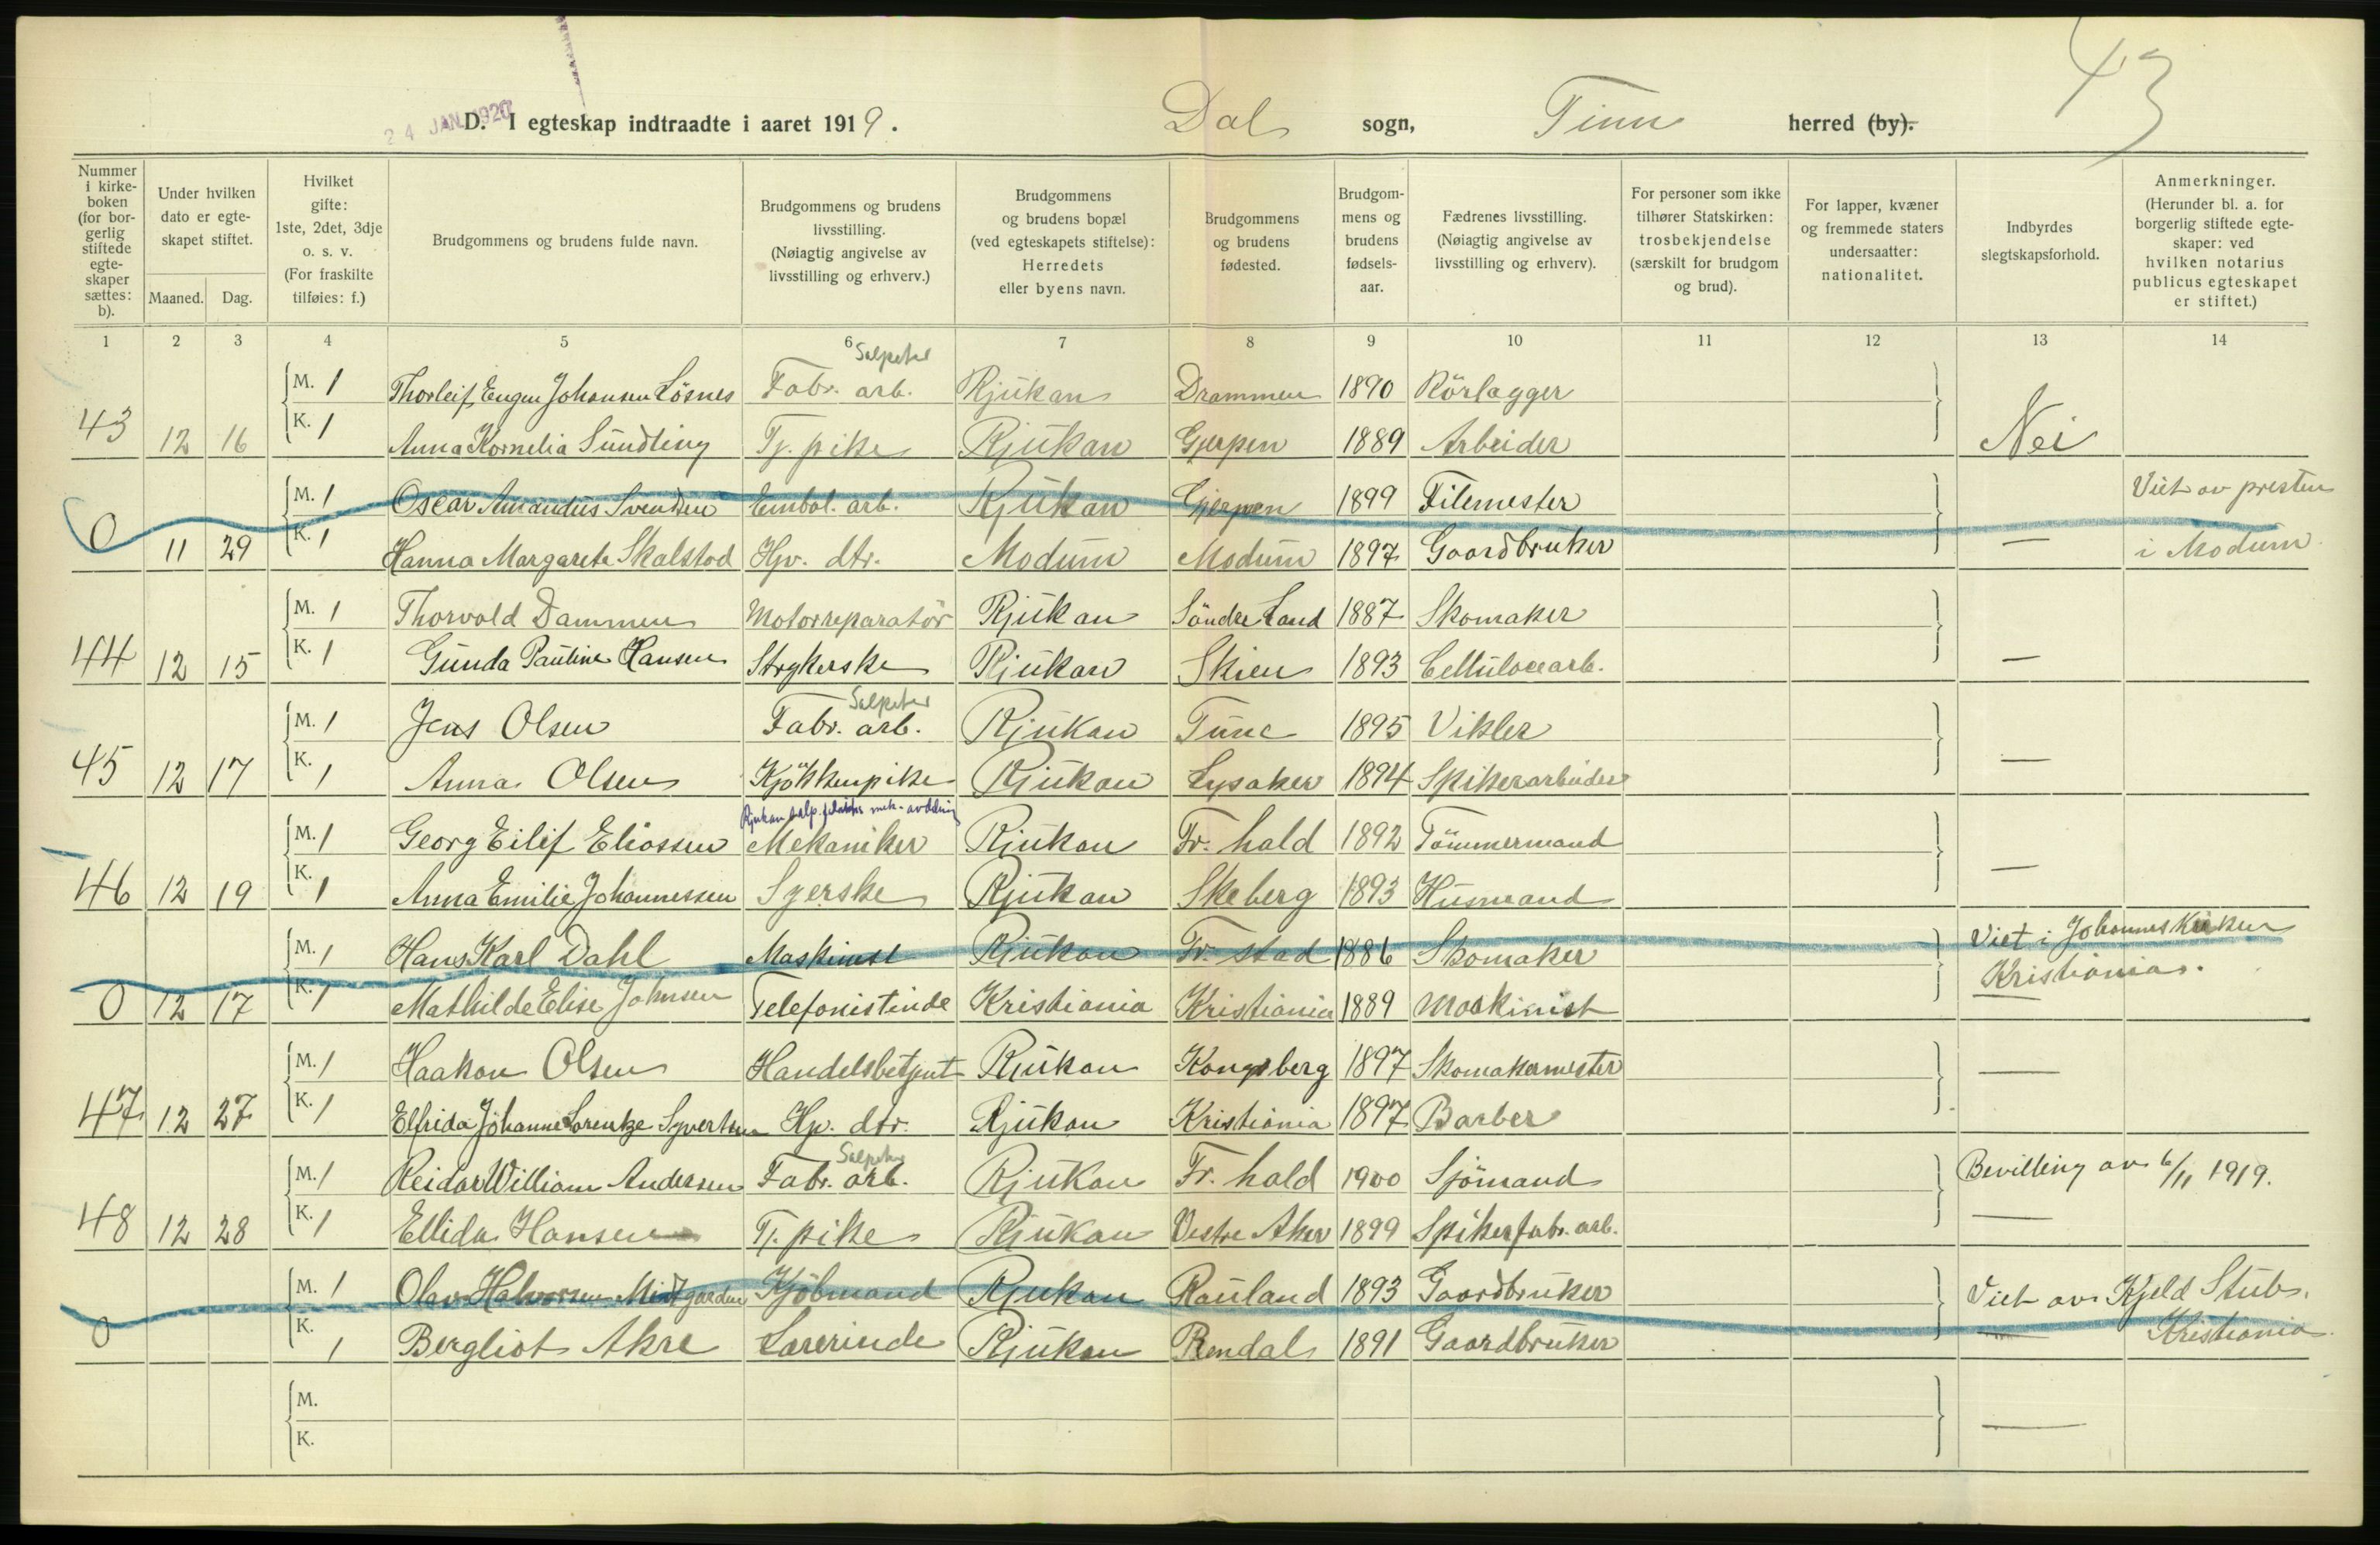 43
24 JAN. 1920
D. I egteskap indtraadte i aaret 1919. Dal sogn, Tinn herred (by).
Nummer i kirke-boken (for bor-gerlig stiftede egte-skaper sættes: b).
Under hvilken dato er egte-skapet stiftet.
Maaned. Dag.
Hvilket gifte: 1ste, 2det, 3dje o. s. v. (For fraskilte tilføies: f.)
Brudgommens og brudens fulde navn.
Brudgommens og brudens livsstilling. (Nøiagtig angivelse av livsstilling og erhverv.)
Brudgommens og brudens bopæl (ved egteskapets stiftelse): Herredets eller byens navn.
Brudgommens og brudens fødested.
Brudgom-mens og brudens fødsels-aar.
Fædrenes livsstilling. (Nøiagtig angivelse av livsstilling og erhverv).
For personer som ikke tilhører Statskirken: trosbekjendelse (særskilt for brudgom og brud).
For lapper, kvæner og fremmede staters undersaatter: nationalitet.
Indbyrdes slegtskapsforhold.
Anmerkninger. (Herunder bl. a. for borgerlig stiftede egte-skaper: ved hvilken notarius publicus egteskapet er stiftet.)
1 2 3 4 5 6 7 8 9 10 11 12 13 14
Salpeter
M. 1 Thorleif Eugen Johansen Lösnes Fabr. arb. Rjukan Drammen 1890 Rörlægger
43 12 16 K. 1 Anna Kornelia Sundling Tj. pike Rjukan Gjerpen 1889 Arbeider Nei
M. 1 Oscar Amandus Svendsen Embal. arb. Rjukan Gjerpen 1899 Filemester Viet av presten
0 11 29 K. 1 Hanna Margarete Skalstad Hjv. dtr. Modum Modum 1897 Gaardbruker — i Modum
M. 1 Thorvald Dammen Motorreparatör Rjukan Söndre Land 1887 Skomaker
44 12 15 K. 1 Gunda Pauline Hansen Strykerske Rjukan Skien 1893 Cellulosearb. —
Salpeter
M. 1 Jens Olsen Fabr. arb. Rjukan Tune 1895 Vikler
45 12 17 K. 1 Anna Olsen Kjökkenpike Rjukan Lysaker 1894 Spikerarbeider —
Rjukan salp. fabrikker mek. avdeling
M. 1 Georg Eilif Eliassen Mekaniker Rjukan Fr. hald 1892 Tömmermand
46 12 19 K. 1 Anna Emilie Johannessen Syerske Rjukan Skeberg 1893 Husmand —
M. 1 Hans Karl Dahl Maskinist Rjukan Fr. stad 1886 Skomaker Viet i Johanneskirken
0 12 17 K. 1 Mathilde Elise Johnsen Telefonistinde Kristiania Kristiania 1889 Maskinist Kristiania.
M. 1 Haakon Olsen Handelsbetjent Rjukan Kongsberg 1897 Skomakermester —
47 12 27 K. 1 Elfrida Johanne Lorentze Syvertsen Hjv. dtr. Rjukan Kristiania 1897 Barber
Salpeter
M. 1 Reidar William Andersen Fabr. arb. Rjukan Fr. hald 1900 Sjömand Bevilling av 6/11 1919.
48 12 28 K. 1 Ellida Hansen Tj. pike Rjukan Vestre Aker 1899 Spikerfabr. arb. —
M. 1 Olav Halvorsen Midtgarden Kjöbmand Rjukan Rauland 1893 Gaardbruker Viet av Kjeld Stub,
0 K. 1 Bergliot Akre Lærerinde Rjukan Rendal 1891 Gaardbruker — Kristiania.
M.
K. —